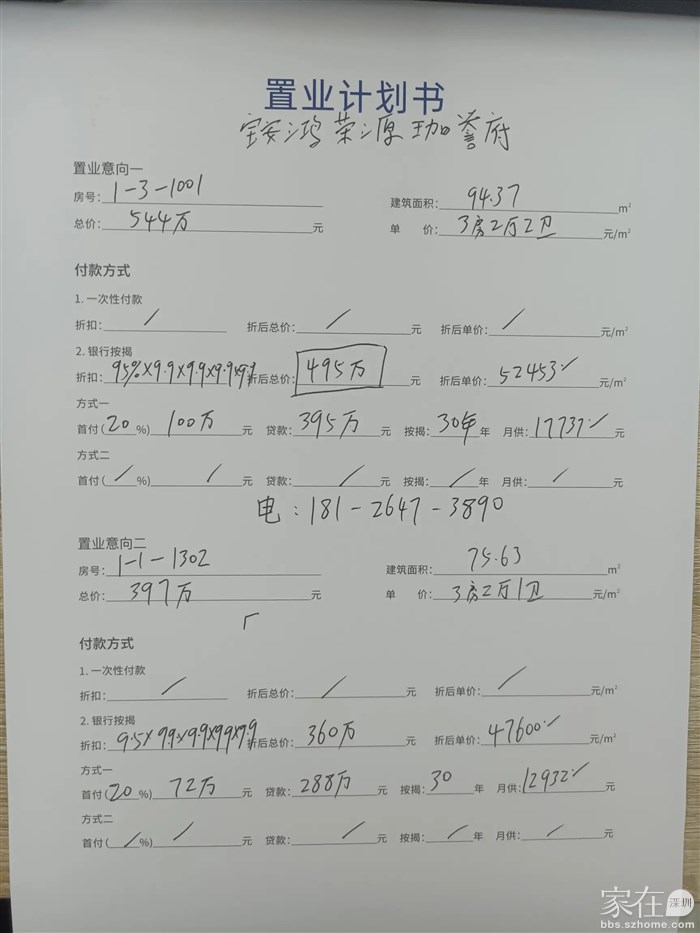 置业计划书
宝安鸿荣源珈誉府
置业意向一
房号: 1-3-1001 建筑面积: 94.37 m²
总价: 544万 元 单 价: 3房2厅2卫 元/m²
付款方式
1. 一次性付款
折扣: / 折后总价: / 元 折后单价: / 元/m²
2. 银行按揭
折扣: 95%×9.9×9.9×9.9×9.9 折后总价: 495万 元 折后单价: 52453 元/m²
方式一
首付 (20 %) 100万 元 贷款: 395万 元 按揭: 30年 年 月供: 17737 元
方式二
首付 ( / %) / 元 贷款: / 元 按揭: / 年 月供: / 元
电: 181-2647-3890
置业意向二
房号: 1-1-1302 建筑面积: 75.63 m²
总价: 397万 元 单 价: 3房2厅1卫 元/m²
付款方式
1. 一次性付款
折扣: / 折后总价: / 元 折后单价: / 元/m²
2. 银行按揭
折扣: 95×9.9×9.9×99×9.9 折后总价: 360万 元 折后单价: 47600 元/m²
方式一
首付 (20 %) 72万 元 贷款: 288万 元 按揭: 30 年 月供: 12932 元
方式二
首付 ( / %) / 元 贷款: / 元 按揭: / 年 月供: / 元
家在深圳
bbs.szhome.com